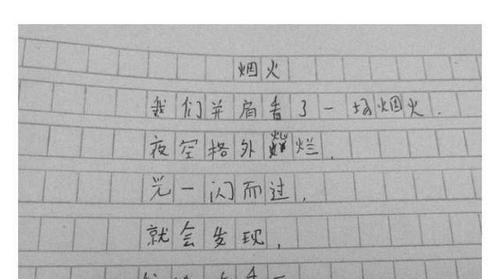 烟火
我们并肩看了一场烟火.
夜空格外灿烂.
光一闪而过.
就会发现,